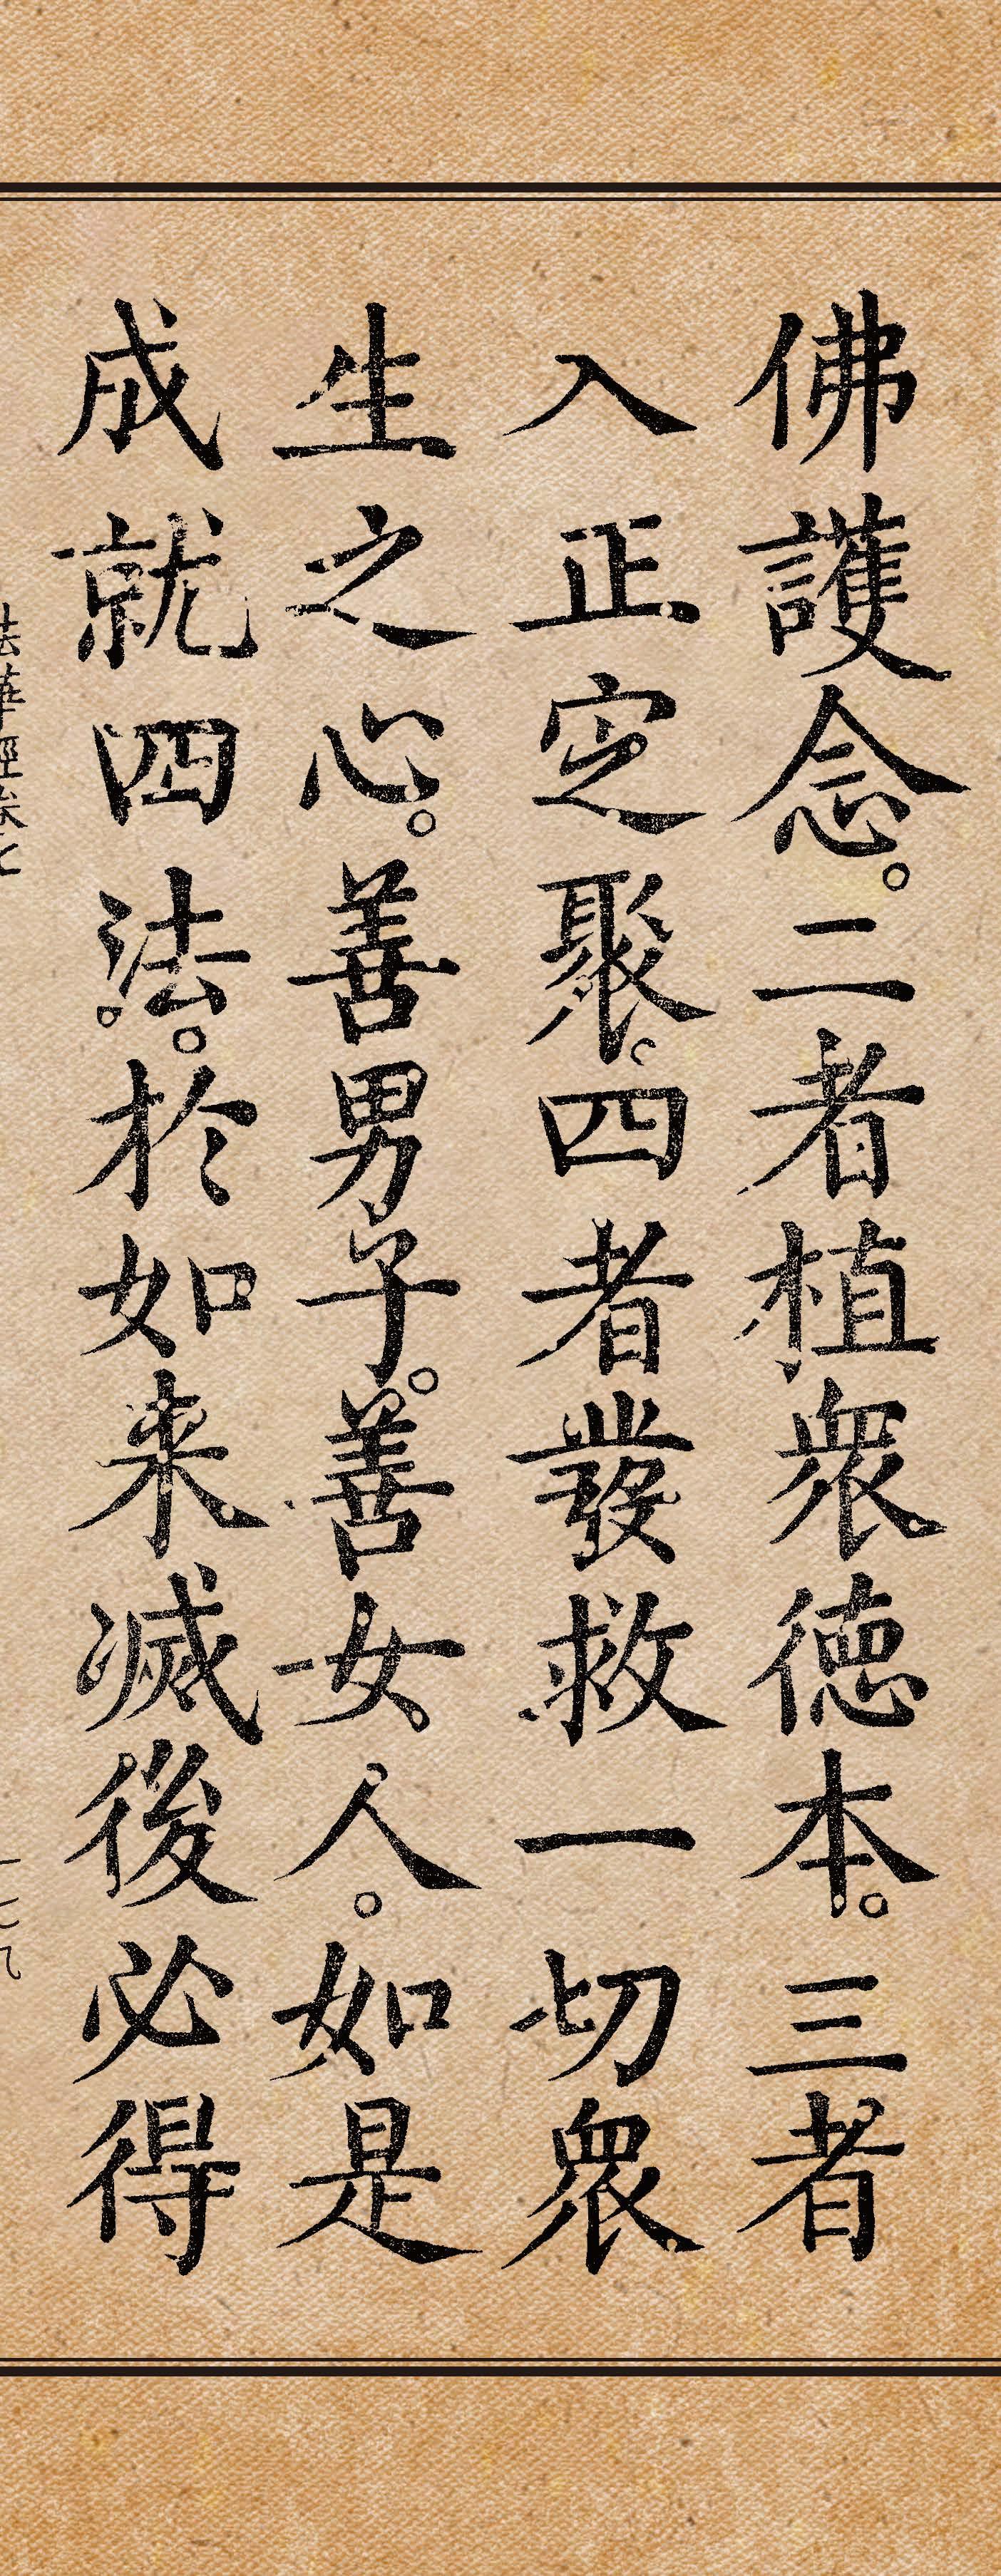 佛護念。二者植衆德本。三者
入正定聚。四者發救一切衆
生之心。善男子。善女人。如是
成就四法。於如来滅後必得
法華經卷七